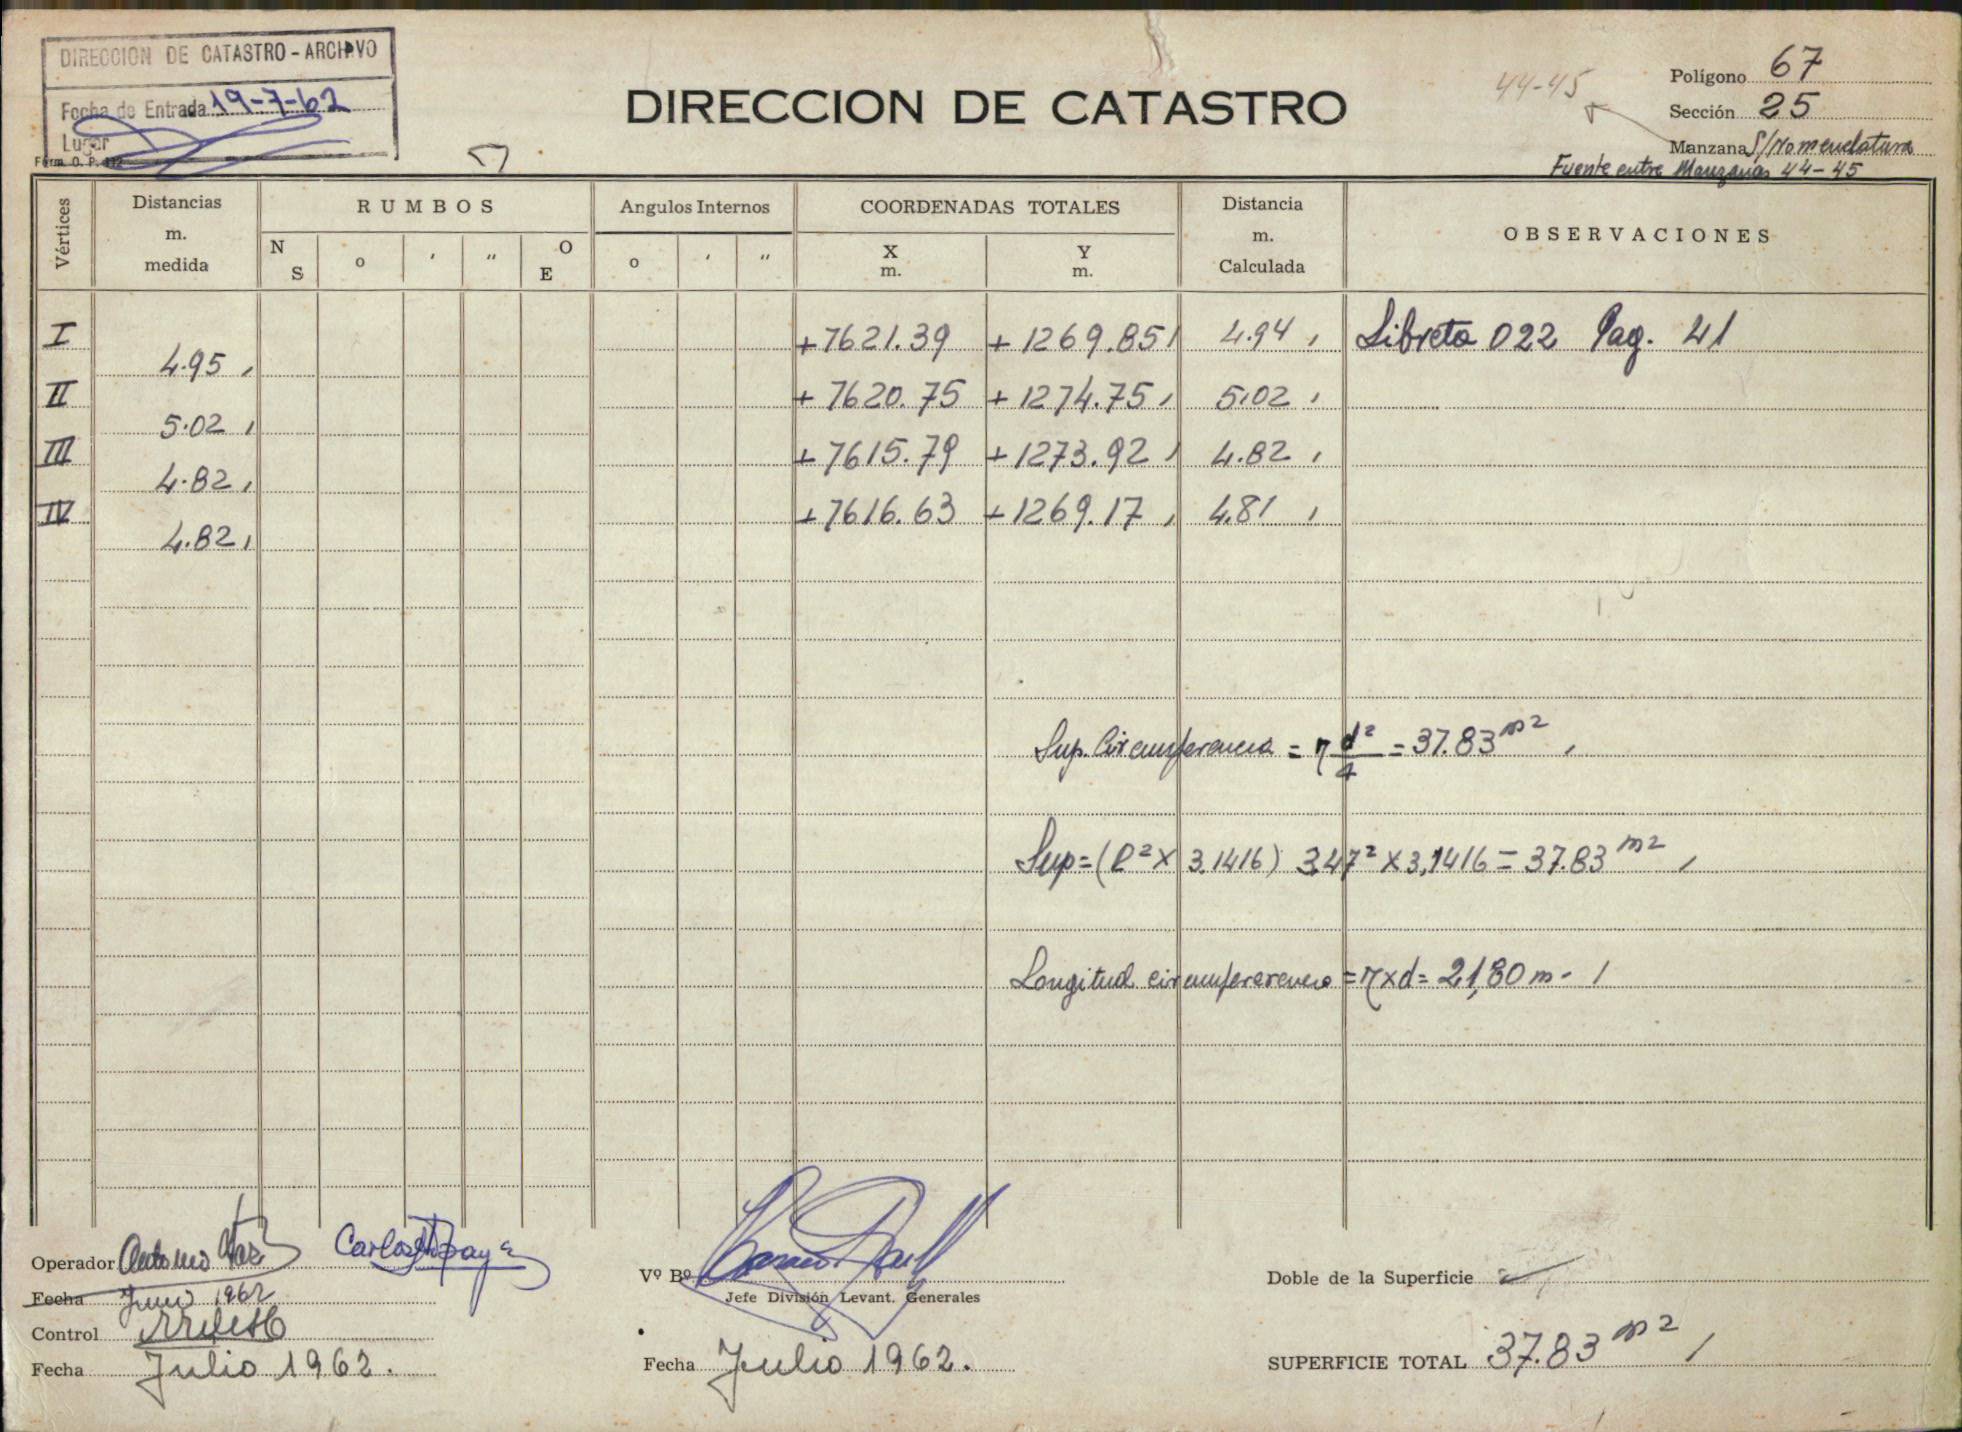 DIRECCION DE CATASTRO - ARCHIVO
Fecha de Entrada 19-7-62
Lugar
Form. O. P. 112
DIRECCION DE CATASTRO
44-45
Polígono 67
Sección 25
Manzana S/Nomenclatura
Fuente entre Manzanas 44-45
Vértices
Distancias
m.
medida
RUMBOS
N
S
o
'
"
O
E
Angulos Internos
o
'
"
COORDENADAS TOTALES
X
m.
Y
m.
Distancia
m.
Calculada
OBSERVACIONES
I +7621.39 +1269.85 4.94 Libreta 022 Pag. 41
4.95
II +7620.75 +1274.75 5.02
5.02
III +7615.79 +1273.92 4.82
4.82
IV +7616.63 +1269.17 4.81
4.82
Sup. Circumferencia = π d²/4 = 37.83 m²
Sup = (R² x 3.1416) 3.47² x 3,1416 = 37.83 m²
Longitud circumfererencia = π x d = 21,80 m-
Operador Antonio
Carlos
Fecha Junio 1962
Control
Fecha Julio 1962.
Vº Bº
Jefe División Levant. Generales
Fecha Julio 1962.
Doble de la Superficie
SUPERFICIE TOTAL 37.83 m²